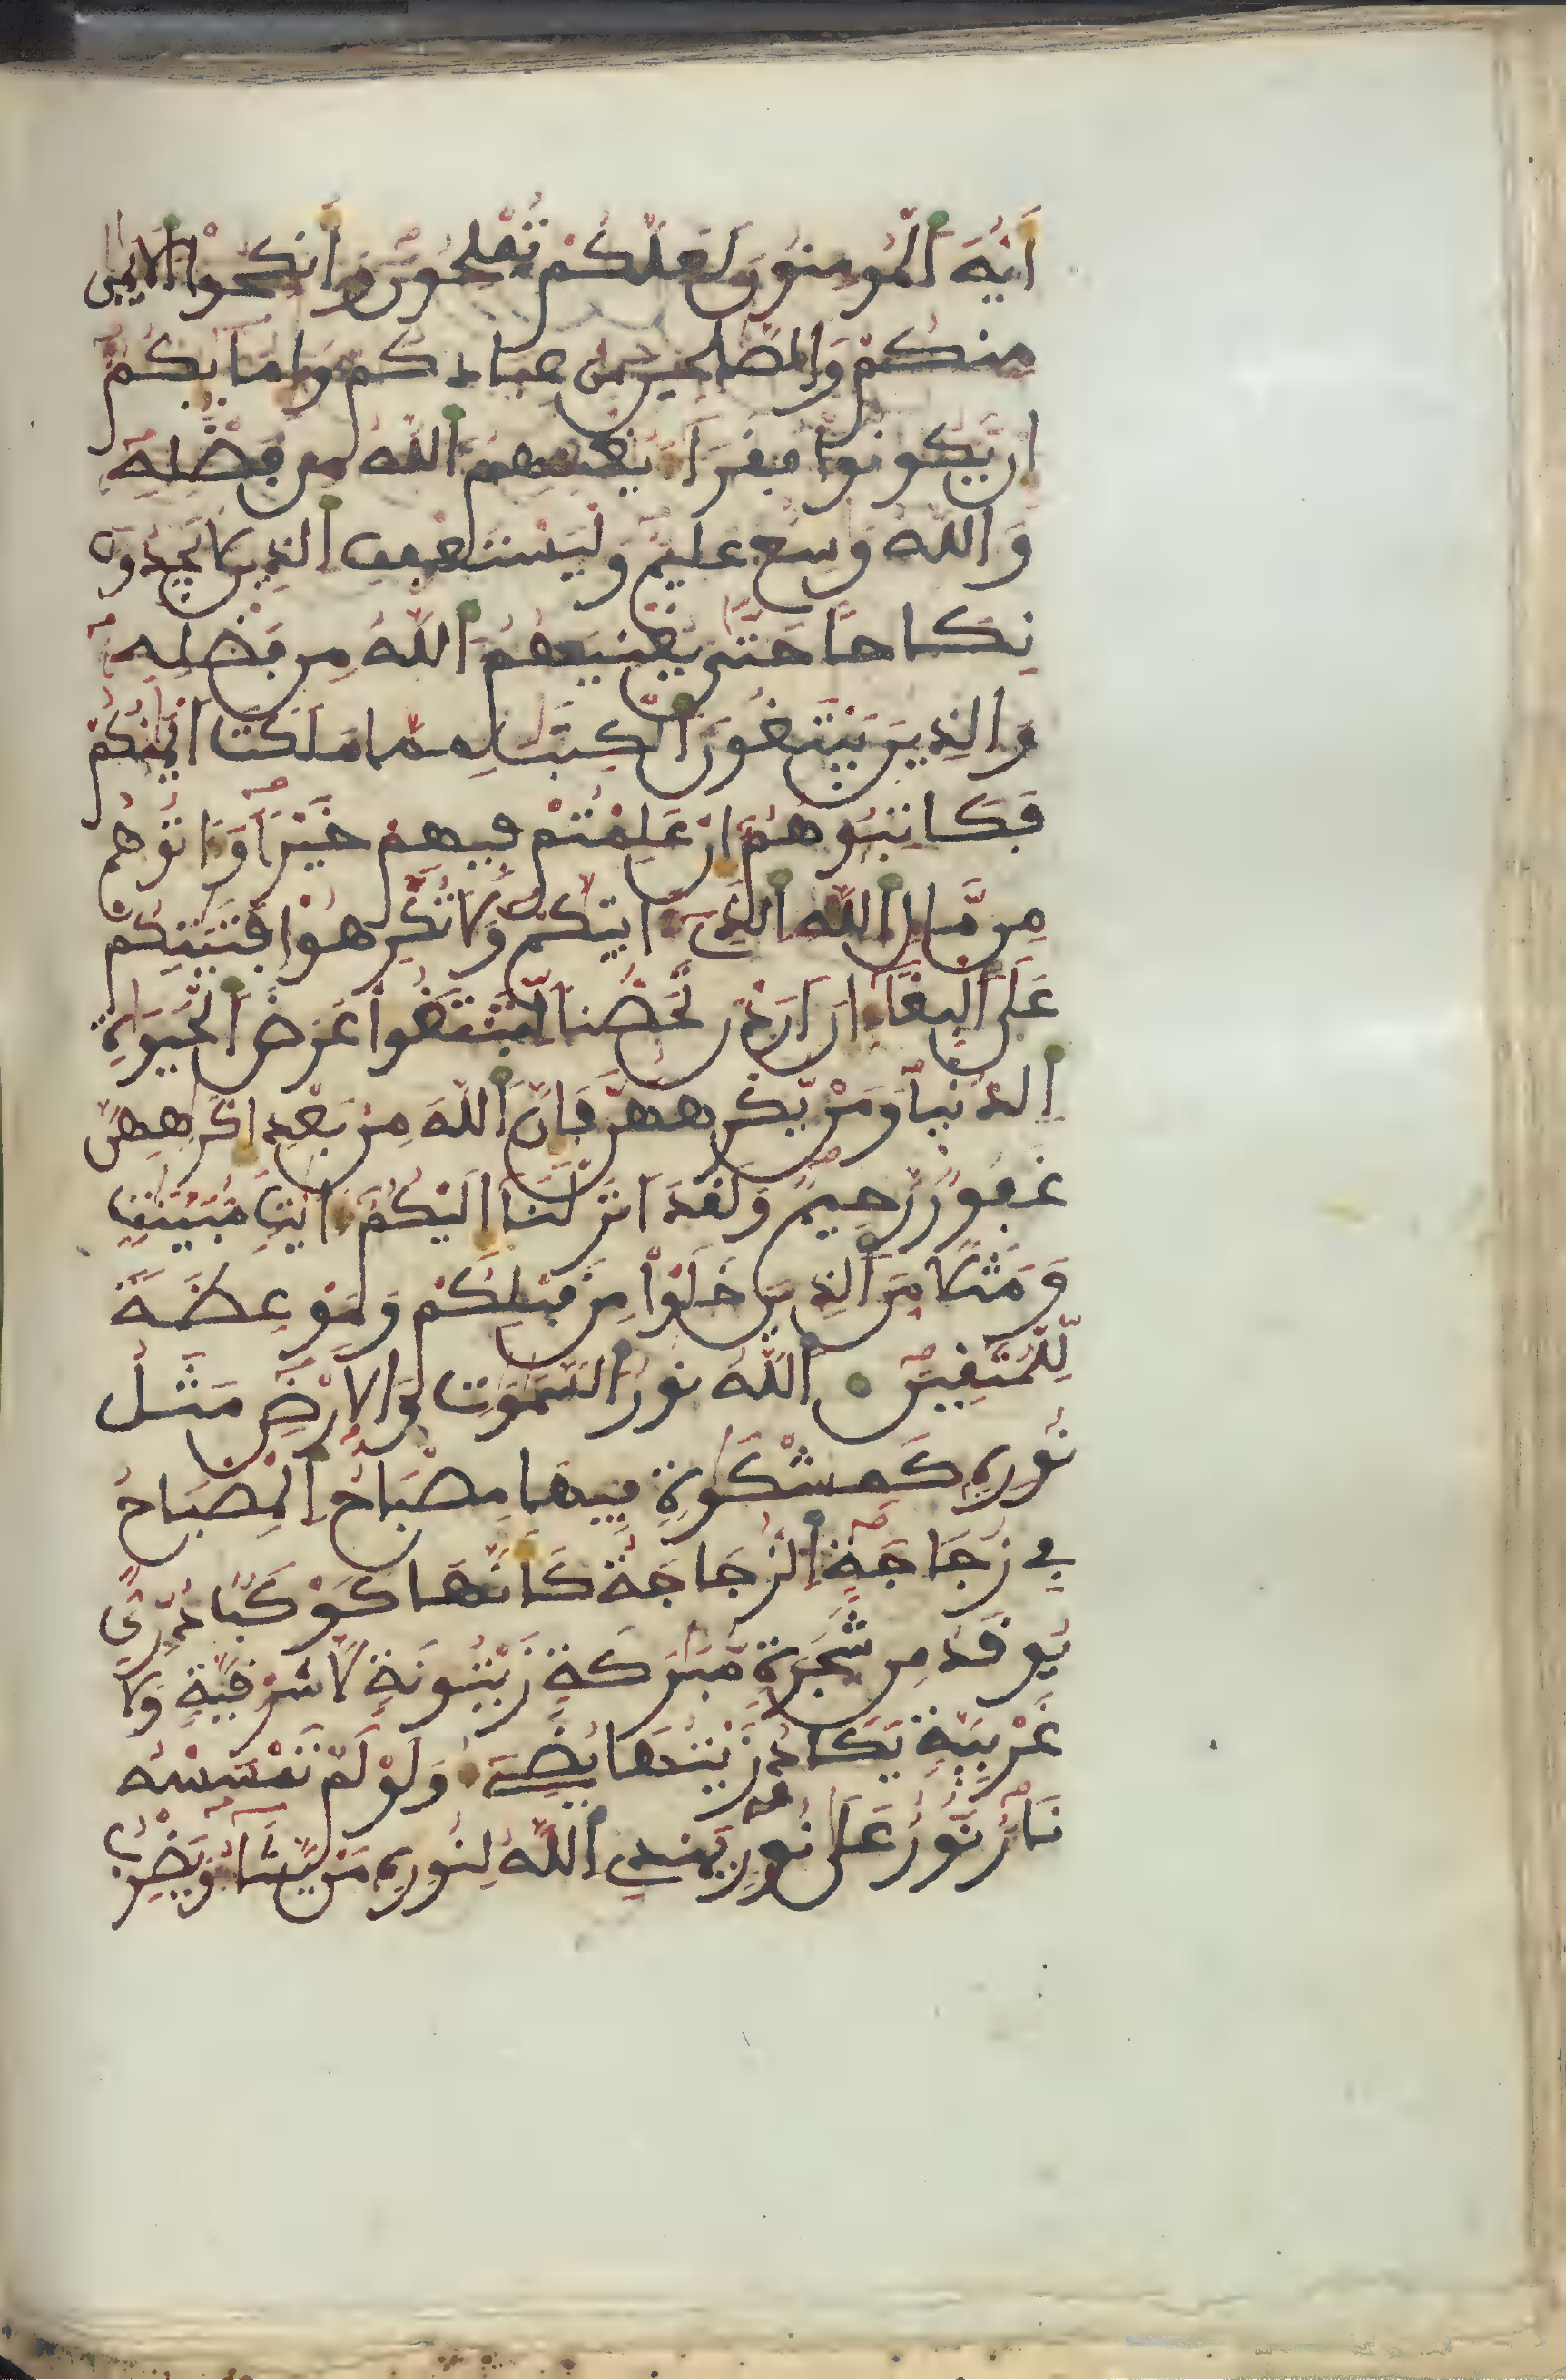 أَيُّهَ ٱلْمُومِنُونَ لَعَلَّكُمْ تُفْلِحُونَ وَأَنكِحُوا۟ ٱلَايَٰمَىٰ
مِنكُمْ وَالصَّٰلِحِينَ مِنْ عِبَادِكُمْ وَإِمَآئِكُمُۥٓ
إِنْ يَّكُونُوا۟ فُقَرَآءَ يُغْنِهِمُ ٱللَّهُ مِن فَضْلِهِۦ
وَاللَّهُ وَٰسِعٌ عَلِيمٌ وَلْيَسْتَعْفِفِ ٱلذِينَ لَا يَجِدُونَ
نِكَاحًا حَتَّىٰ يُغْنِيَهُمُ ٱللَّهُ مِن فَضْلِهِۦ
وَالذِينَ يَبْتَغُونَ ٱلْكِتَٰبَ مِمَّا مَلَكَتَ اَيْمَٰنُكُمْ
فَكَاتِبُوهُمُۥٓ إِنْ عَلِمْتُمْ فِيهِمْ خَيْرًا وَءَاتُوهُم
مِّن مَّالِ ٱللَّهِ ٱلذِىٓ ءَاتَيٰكُمْ وَلَا تُكْرِهُوا۟ فَتَيَٰتِكُمْ
عَلَى ٱلْبِغَآءِ انَ اَرَدْنَ تَحَصُّنًا لِّتَبْتَغُوا۟ عَرَضَ ٱلْحَيَوٰةِ
ٱلدُّنْيَا وَمَنْ يُّكْرِههُّنَّ فَإِنَّ ٱللَّهَ مِنۢ بَعْدِ إِكْرَٰهِهِنَّ
غَفُورٌ رَّحِيمٌ وَلَقَدَ اَنزَلْنَآ إِلَيْكُمُۥٓ ءَايَٰتٍ مُّبَيَّنَٰتٍ
وَمَثَلًا مِّنَ ٱلذِينَ خَلَوْا۟ مِن قَبْلِكُمْ وَمَوْعِظَةً
لِّلْمُتَّقِينَ ٱللَّهُ نُورُ ٱلسَّمَٰوَٰتِ وَالَارْضِ مَثَلُ
نُورِهِۦ كَمِشْكَوٰةٍ فِيهَا مِصْبَاحٌ ٱلْمِصْبَاحُ
فِى زُجَاجَةٍ ٱلزُّجَاجَةُ كَأَنَّهَا كَوْكَبٌ دُرِّىٌّ
يُوقَدُ مِن شَجَرَةٍ مُّبَٰرَكَةٍ زَيْتُونَةٍ لَّا شَرْقِيَّةٍ وَلَا
غَرْبِيَّةٍ يَكَادُ زَيْتُهَا يُضِىٓءُ وَلَوْ لَمْ تَمْسَسْهُ
نَارٌ نُّورٌ عَلَىٰ نُورٍ يَهْدِى ٱللَّهُ لِنُورِهِۦ مَنْ يَّشَآءُ وَيَضْرِبُ